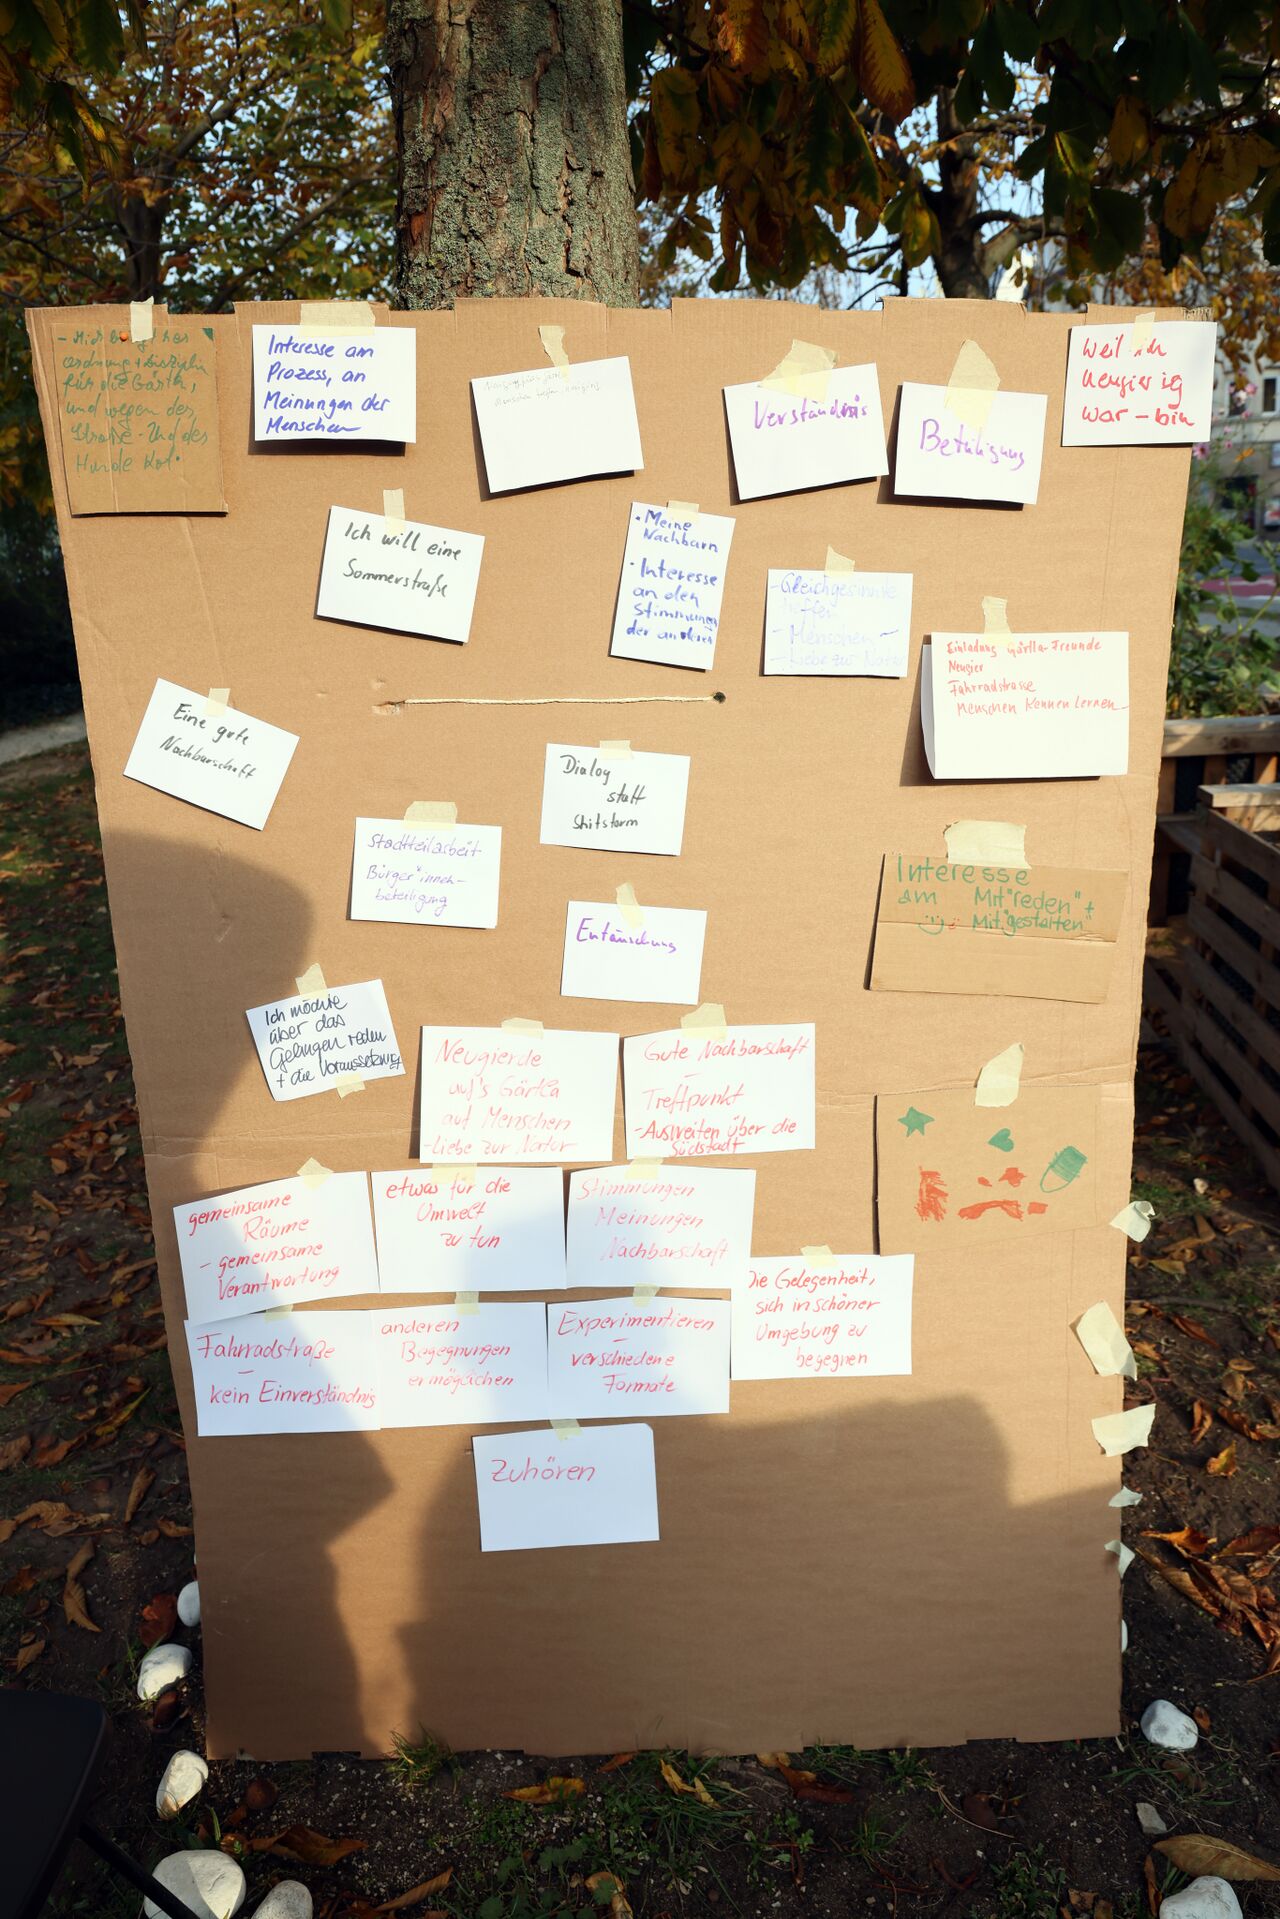 ordnung + Disziplin
für die Gärten,
und wegen der
Straße - Und des
Interesse am
Prozess, an
Meinungen der
Menschen
Verständnis
Beteiligung
weil ich
neugierig
war - bin
Ich will eine
Sommerstraße
• Meine
Nachbarn
• Interesse
an den
Stimmungen
der anderen
- Gleichgesinnte
treffen
- Menschen -
- Liebe zur Natur
Einladung Gärtla-Freunde
Neugier
Fahrradstrasse
Menschen Kennen Lernen
Eine gute
Nachbarschaft
Dialog
statt
Shitstorm
Stadtteilarbeit
Bürger*innen-
beteiligung
Interesse
am Mit"reden" +
Mit"gestalten"
Entäuschung
Ich möchte
über das
Gelingen reden
+ die Voraussetzung
Neugierde
auf's Gärtla
auf Menschen
- Liebe zur Natur
Gute Nachbarschaft
-
Treffpunkt
- Ausweiten über die
Südstadt
gemeinsame
Räume
- gemeinsame
Verantwortung
etwas für die
Umwelt
zu tun
Stimmungen
Meinungen
Nachbarschaft
Die Gelegenheit,
sich in schöner
Umgebung zu
begegnen
Fahrradstraße
-
kein Einverständnis
anderen
Begegnungen
ermöglichen
Experimentieren
-
verschiedene
Formate
Zuhören